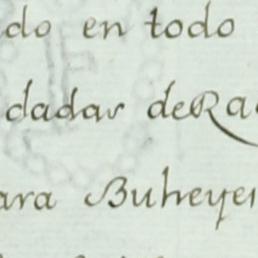 do en todo
dadas de Ra
ara Buheye